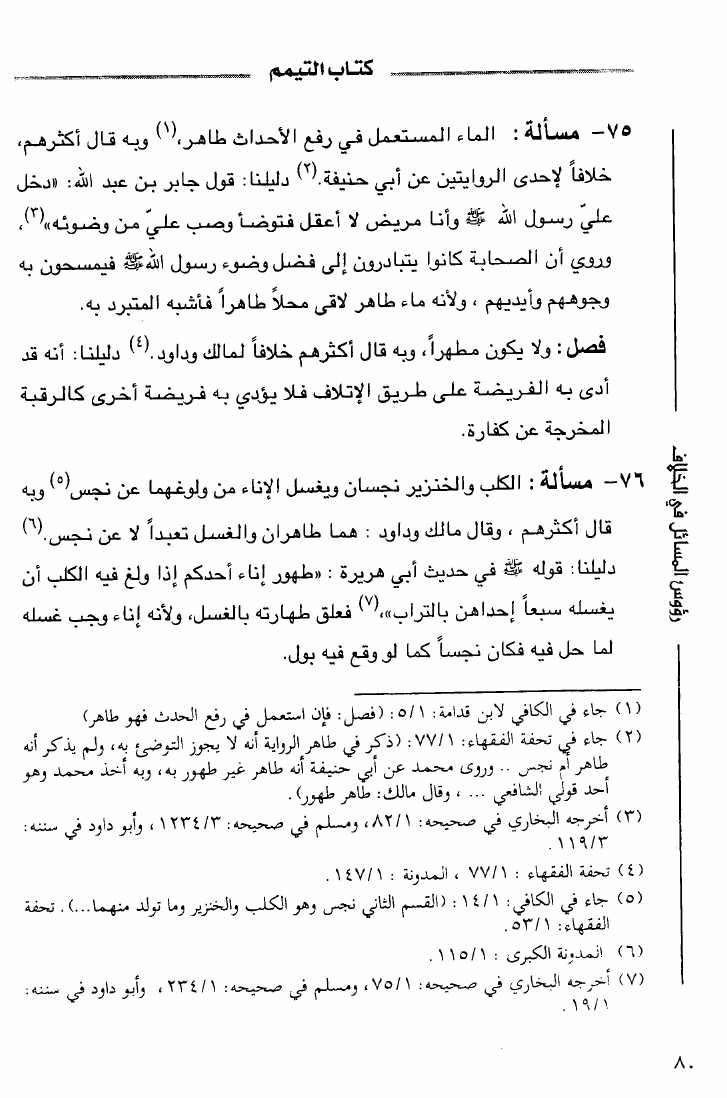 كتاب التيمم
٧٥- مسألة : الماء المستعمل في رفع الأحداث طاهر،(١) وبه قال أكثرهم،
خلافاً لإحدى الروايتين عن أبي حنيفة.(٢) دليلنا: قول جابر بن عبد الله: «دخل
عليّ رسول الله ﷺ وأنا مريض لا أعقل فتوضأ وصب عليّ من وضوئه»(٣)،
وروي أن الصحابة كانوا يتبادرون إلى فضل وضوء رسول الله ﷺ فيمسحون به
وجوههم وأيديهم ، ولأنه ماء طاهر لاقى محلاً طاهراً فأشبه المتبرد به.
فصل : ولا يكون مطهراً، وبه قال أكثرهم خلافاً لمالك وداود.(٤) دليلنا: أنه قد
أدى به الفريضة على طريق الإتلاف فلا يؤدي به فريضة أخرى كالرقبة
المخرجة عن كفارة.
٧٦- مسألة : الكلب والخنزير نجسان ويغسل الإناء من ولوغهما عن نجس(٥) وبه
قال أكثرهم ، وقال مالك وداود : هما طاهران والغسل تعبداً لا عن نجس.(٦)
دليلنا: قوله ﷺ في حديث أبي هريرة : «طهور إناء أحدكم إذا ولغ فيه الكلب أن
يغسله سبعاً إحداهن بالتراب»،(٧) فعلق طهارته بالغسل، ولأنه إناء وجب غسله
لما حل فيه فكان نجساً كما لو وقع فيه بول.
رؤوس المسائل في الخلاف
(١) جاء في الكافي لابن قدامة: ٥/١: (فصل: فإن استعمل في رفع الحدث فهو طاهر)
(٢) جاء في تحفة الفقهاء: ٧٧/١: (ذكر في ظاهر الرواية أنه لا يجوز التوضئ به، ولم يذكر أنه
طاهر أم نجس .. وروى محمد عن أبي حنيفة أنه طاهر غير طهور به، وبه أخذ محمد وهو
أحد قولي الشافعي ... ، وقال مالك: طاهر طهور).
(٣) أخرجه البخاري في صحيحه: ٨٢/١، ومسلم في صحيحه: ١٢٣٤/٣ ، وأبو داود في سننه:
١١٩/٣ .
(٤) تحفة الفقهاء : ٧٧/١ ، المدونة : ١٤٧/١ .
(٥) جاء في الكافي: ١٤/١ : (القسم الثاني نجس وهو الكلب والخنزير وما تولد منهما...). تحفة
الفقهاء: ٥٣/١.
(٦) المدونة الكبرى : ١١٥/١.
(٧) أخرجه البخاري في صحيحه: ٧٥/١، ومسلم في صحيحه: ٢٣٤/١ ، وأبو داود في سننه:
١٩/١ .
٨٠